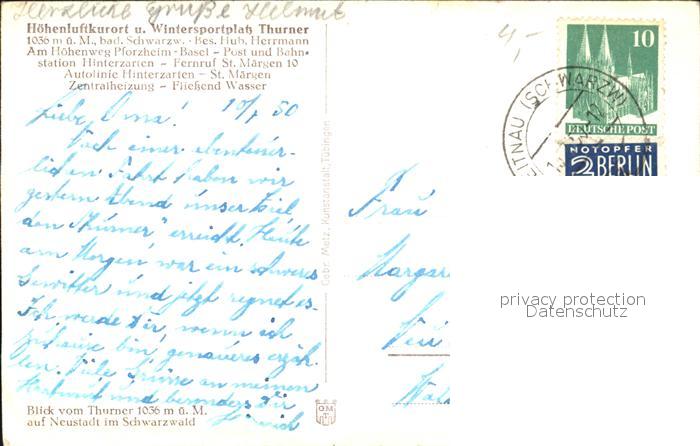 Herzliche Grüße Helmut
Höhenluftkurort u. Wintersportplatz Thurner
1036 m ü. M., bad. Schwarzw. · Bes. Hub. Herrmann
Am Höhenweg Pforzheim - Basel – Post und Bahn-
station Hinterzarten – Fernruf St. Märgen 10
Autolinie Hinterzarten – St. Märgen
Zentralheizung – Fließend Wasser
Liebe Oma! 50
Nach einer abenteuer-
lichen Fahrt haben wir
gestern Abend unser Ziel,
den "Thurner" erreicht. Heute
am Morgen war ein schweres
Gewitter und jetzt regnet es.
Ich werde Dir, wenn ich
zuhause bin, genaueres erzäh-
len. Viele Grüsse an meinen
und besonders Dir
Blick vom Thurner 1036 m ü. M.
auf Neustadt im Schwarzwald
Gebr. Metz, Kunstanstalt, Tübingen
4,-
10
DEUTSCHE POST
NOTOPFER
2 BERLIN
EITNAU (SCHWARZW)
Frau
Margar
Neu
privacy protection
Datenschutz